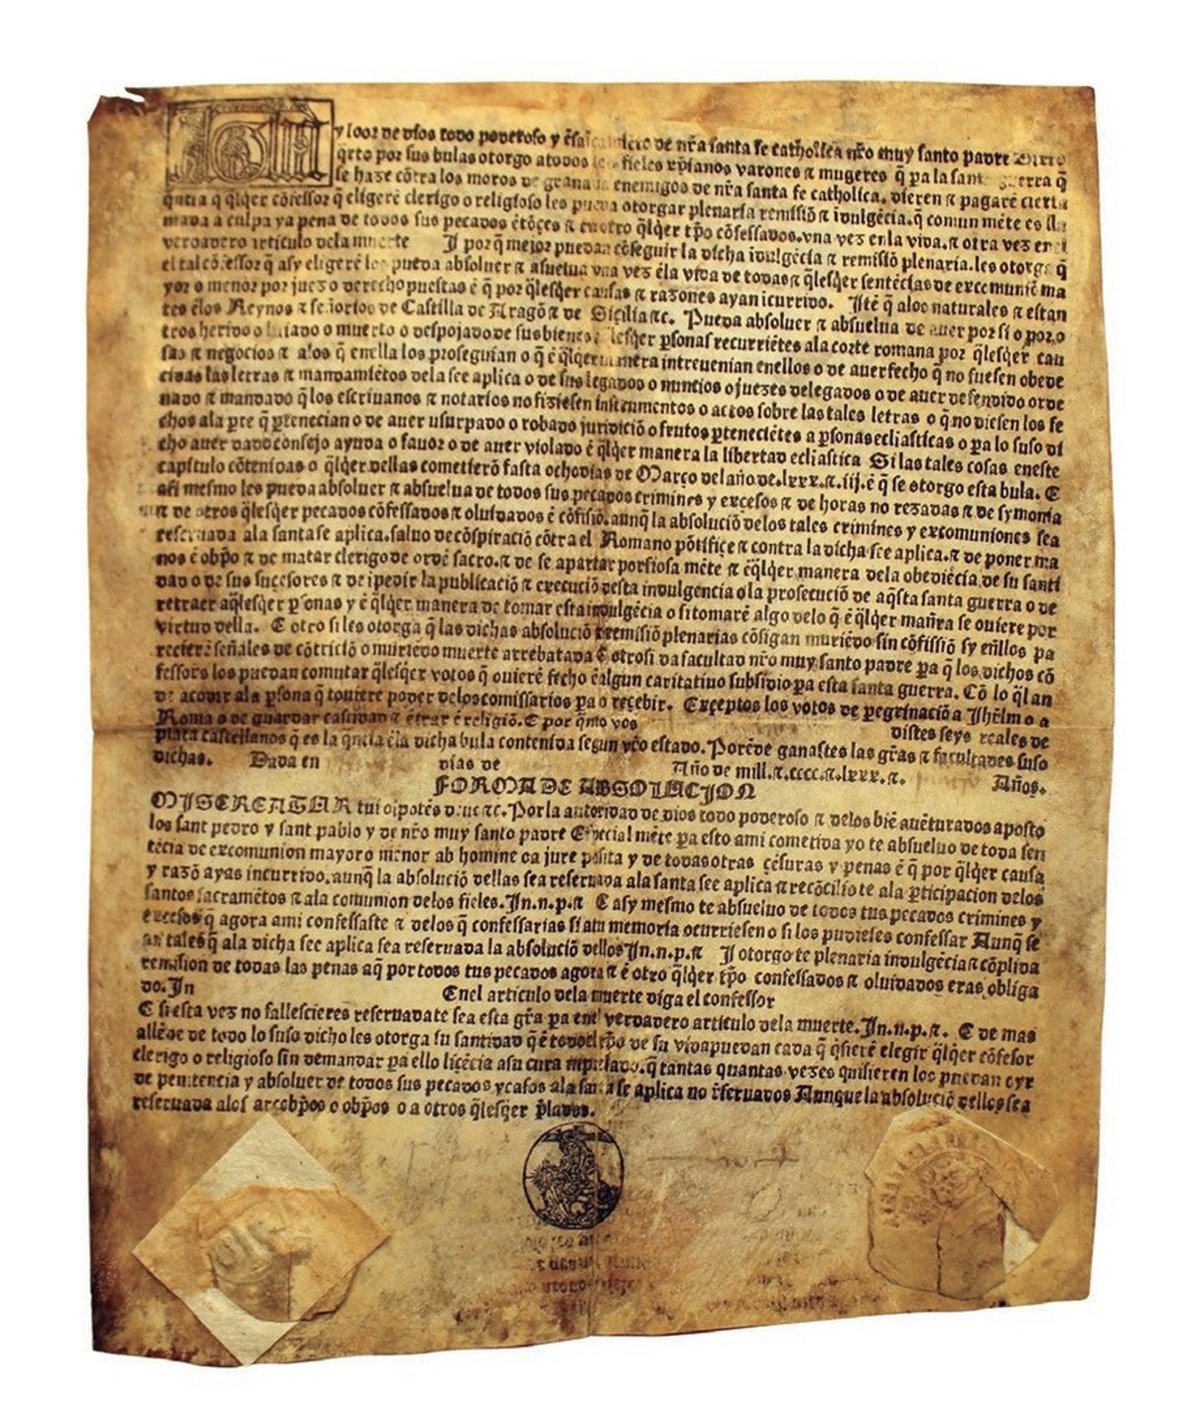 y loor de dios todo poderoso y de nr̃a santa fe catholica nr̃o muy santo padre
por sus bulas otorgo a todos fieles xp̃ianos varones ⁊ mugeres q̃ pa la
se haze cõtra los moros de grana enemigos de nr̃a santa fe catholica, dieren ⁊ pagarẽ cierta
q̃ q̃lq̃er cõfessor q̃ eligerẽ clerigo o religioso les pueda otorgar plenaria remissiõ ⁊ indulgẽcia. q̃ comun mẽte es
a culpa ya pena de todos sus pecados ẽtõçes ⁊ q̃lq̃er tp̃o cõfessados. vna vez en la vida. ⁊ otra vez
verdadero articulo dela muerte J por q̃ mejor puedan cõseguir la dicha idulgẽcia ⁊ remisiõ plenaria. les otorga q̃
el tal cõfessor q̃ asy eligerẽ pueda absoluer ⁊ asuelua vna vez ẽla vida de todas ⁊ q̃lesq̃er sentẽcias de excomuniẽ ma
yor o menor por juez o derecho puestas ẽ q̃ por q̃lesq̃er causas ⁊ razones ayan icurrido. Jtẽ q̃ alos naturales ⁊ estan
tes ẽlos Reynos ⁊ señorios de Castilla de Aragõ ⁊ de Sicilia ⁊c. Pueda absoluer ⁊ absuelua de auer por si o por o
tros herido o muerto o despojado de sus bienes q̃lesq̃er psonas recurriẽtes ala corte romana por q̃lesq̃er cau
sas ⁊ negocios ⁊ alos q̃ enella los proseguian o q̃ ẽ q̃lq̃er manera intreuenian enellos o de auer fecho q̃ no fuesen obede
cidas las letras ⁊ mandamiẽtos dela see aplica o de sus legados o nuntios o juezes delegados o de auer defendido o rde
nado ⁊ mandado q̃ los escriuanos ⁊ notarios no fiziesen instrumentos o actos sobre las tales letras o q̃ no diesen los fe
chos ala pte q̃ ptenecian o de auer vsurpado o robado juridiciõ o frutos pteneciẽtes a psonas ecliasticas o pa lo suso di
cho auer dado consejo ayuda o fauor o de auer violado ẽ q̃lq̃er manera la libertad ecliastica Si las tales cosas eneste
capitulo cõtenidas o q̃lq̃er dellas cometierõ fasta ocho dias de Março del año de. lxxx. ⁊. iij. ẽ q̃ se otorgo esta bula. E
asi mesmo les pueda absoluer ⁊ absuelua de todos sus pecados crimines y exçesos ⁊ de horas no rezadas ⁊ de symonia
⁊ de otros q̃lesq̃er pecados cõfessados ⁊ oluidados ẽ cõfisiõ. aunq̃ la absoluciõ delos tales crimines y excomuniones sea
reseruada ala santa se aplica. saluo de cõspiraciõ cõtra el Romano põtifiçe ⁊ contra la dicha see aplica. ⁊ de poner ma
nos ẽ obp̃o ⁊ de matar clerigo de ordẽ sacro. ⁊ de se apartar porfiosa mẽte ⁊ ẽq̃lq̃er manera dela obediẽcia de su santi
dad o de sus suçesores ⁊ de ipedir la publicaciõ ⁊ execuciõ desta indulgencia o la prosecuciõ de aq̃sta santa guerra o de
retraer aq̃lesq̃er psonas y ẽ q̃lq̃er manera de tomar esta indulgẽcia o si tomarẽ algo delo q̃ ẽ q̃lq̃er mañra se ouiere por
virtud della. E otro si les otorga q̃ las dichas absoluciõ remisiõ plenarias cõsigan muriẽdo sin cõfissiõ sy eñllos pa
recierẽ señales de cõtriciõ o muriẽdo muerte arrebatada E otrosi da facultad nr̃o muy santo padre pa q̃ los dichos cõ
fessores los puedan comutar q̃lesq̃er votos q̃ ouierẽ fecho ẽalgun caritatiuo subsidio pa esta santa guerra. Cõ lo q̃l an
de acodir ala psona q̃ touiere poder delos comissarios pa o reçebir. Exçeptos los votos de pegrinaciõ a Jhr̃lmo a
Roma o de guardar castidad ⁊ ẽtrar ẽ religiõ. E por q̃nto vos distes seys reales de
plata castellanos q̃ es la q̃ntia ẽla dicha bula contenida segun vr̃o estado. Porẽde ganastes las gr̃as ⁊ facultades suso
dichas. Dada en dias de Año de mill. ⁊. cccc. ⁊. lxxx. ⁊. Años.
FORMA DE ABSOLUCION
MISEREATUR tui oĩpotẽs deus ⁊c. Por la autoridad de dios todo poderoso ⁊ delos biẽ auẽturados aposto
los sant pedro y sant pablo y de nr̃o muy santo padre Especial mẽte pa esto ami cometida yo te absueluo de toda sen
tẽcia de excomunion mayor o menor ab homine oa jure posita y de todas otras çẽsuras y penas ẽ q̃ por q̃lq̃er causa
y razõ ayas incurrido. aunq̃ la absoluciõ dellas sea reseruada ala santa see aplica ⁊ recõcilio te ala pticipacion delos
santos sacramẽtos ⁊ ala comunion delos fieles. Jn. n. p. ⁊ E asy mesmo te absueluo de todos tus pecados crimines y
exçesos q̃ agora ami confessaste ⁊ delos q̃ confessarias si atu memoria ocurriesen o si los pudieses confessar Aunq̃ se
an tales q̃ ala dicha see aplica sea reseruada la absoluciõ dellos Jn. n. p. ⁊ J otorgo te plenaria indulgẽcia ⁊ cõplida
remision de todas las penas aq̃ por todos tus pecados agora ⁊ ẽ otro q̃lq̃er tp̃o confessados ⁊ oluidados eras obliga
do. Jn Enel articulo dela muerte diga el confessor
E si esta vez no fallescieres reseruadate sea esta gr̃a pa enel verdadero articulo dela muerte. Jn. n. p. ⁊. E de mas
allẽde de todo lo suso dicho les otorga su santidad q̃ ẽ todo tp̃o de su vida puedan cada q̃ q̃sierẽ elegir q̃lq̃er cõfesor
clerigo o religioso sin demandar pa ello liçẽcia asu cura nip̃lado. q̃ tantas quantas vezes quisieren los puedan oyr
de penitencia y absoluer de todos sus pecados y casos ala santa se aplica no r̃seruados Aunque la absoluciõ dellos sea
reseruada alos arçobp̃os o obp̃os o a otros q̃lesq̃er p̃lados.